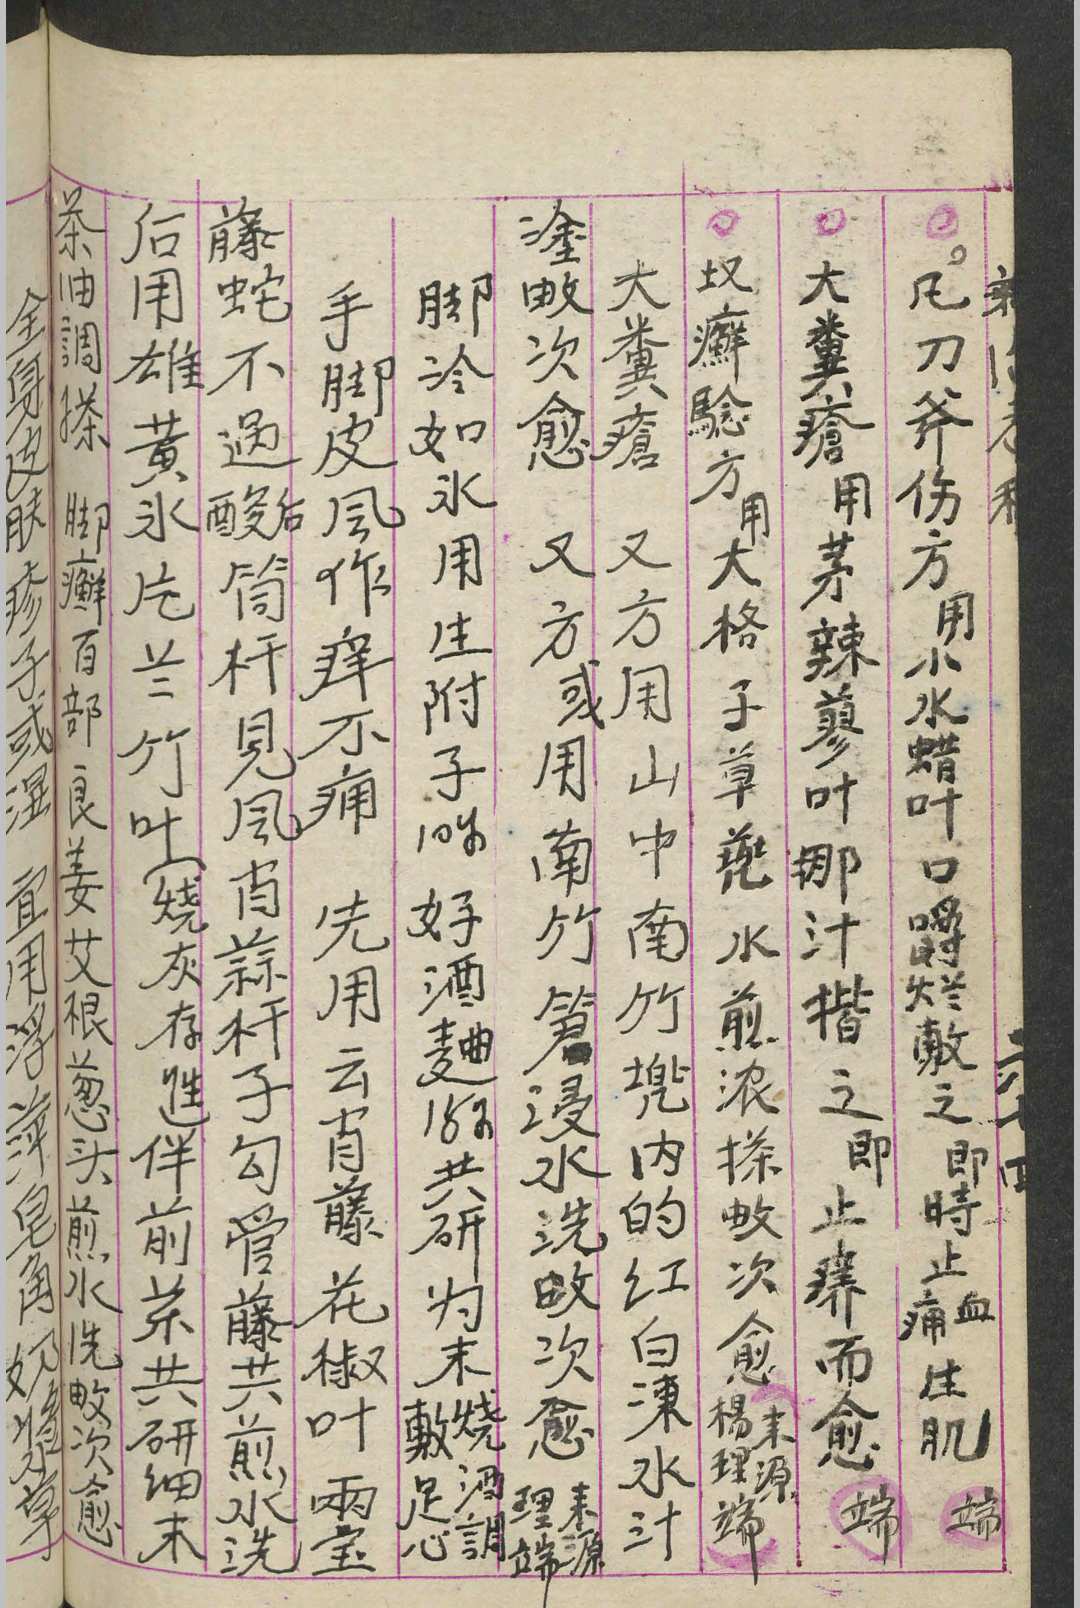 凡刀斧伤方用小水蜡叶口嚼烂敷之即時止血痛生肌 端
大糞瘡用茅辣蓼叶挪汁揩之即止痒而愈 端
癩癬驗方用大格子草蔸水煎浓搽数次愈 来源楊理端
大糞瘡 又方用山中南竹蔸内的红白凍水汁
塗数次愈 又方或用南竹筒浸水洗数次愈 来源理端
脚冷如氷用生附子 好酒麯 共研为末燒酒調敷足心
手脚皮风作痒不痛 先用云肖藤花椒叶兩宝
藤蛇不過酸后筒杆見风肖蒜杆子勾管藤共煎水洗
后用雄黄氷片兰竹叶(燒灰存性伴前茶共研细末
茶油調搽 脚癬百部良姜艾根葱头煎水洗数次愈
全身皮肤疹子或湿 宜用浮萍皂角